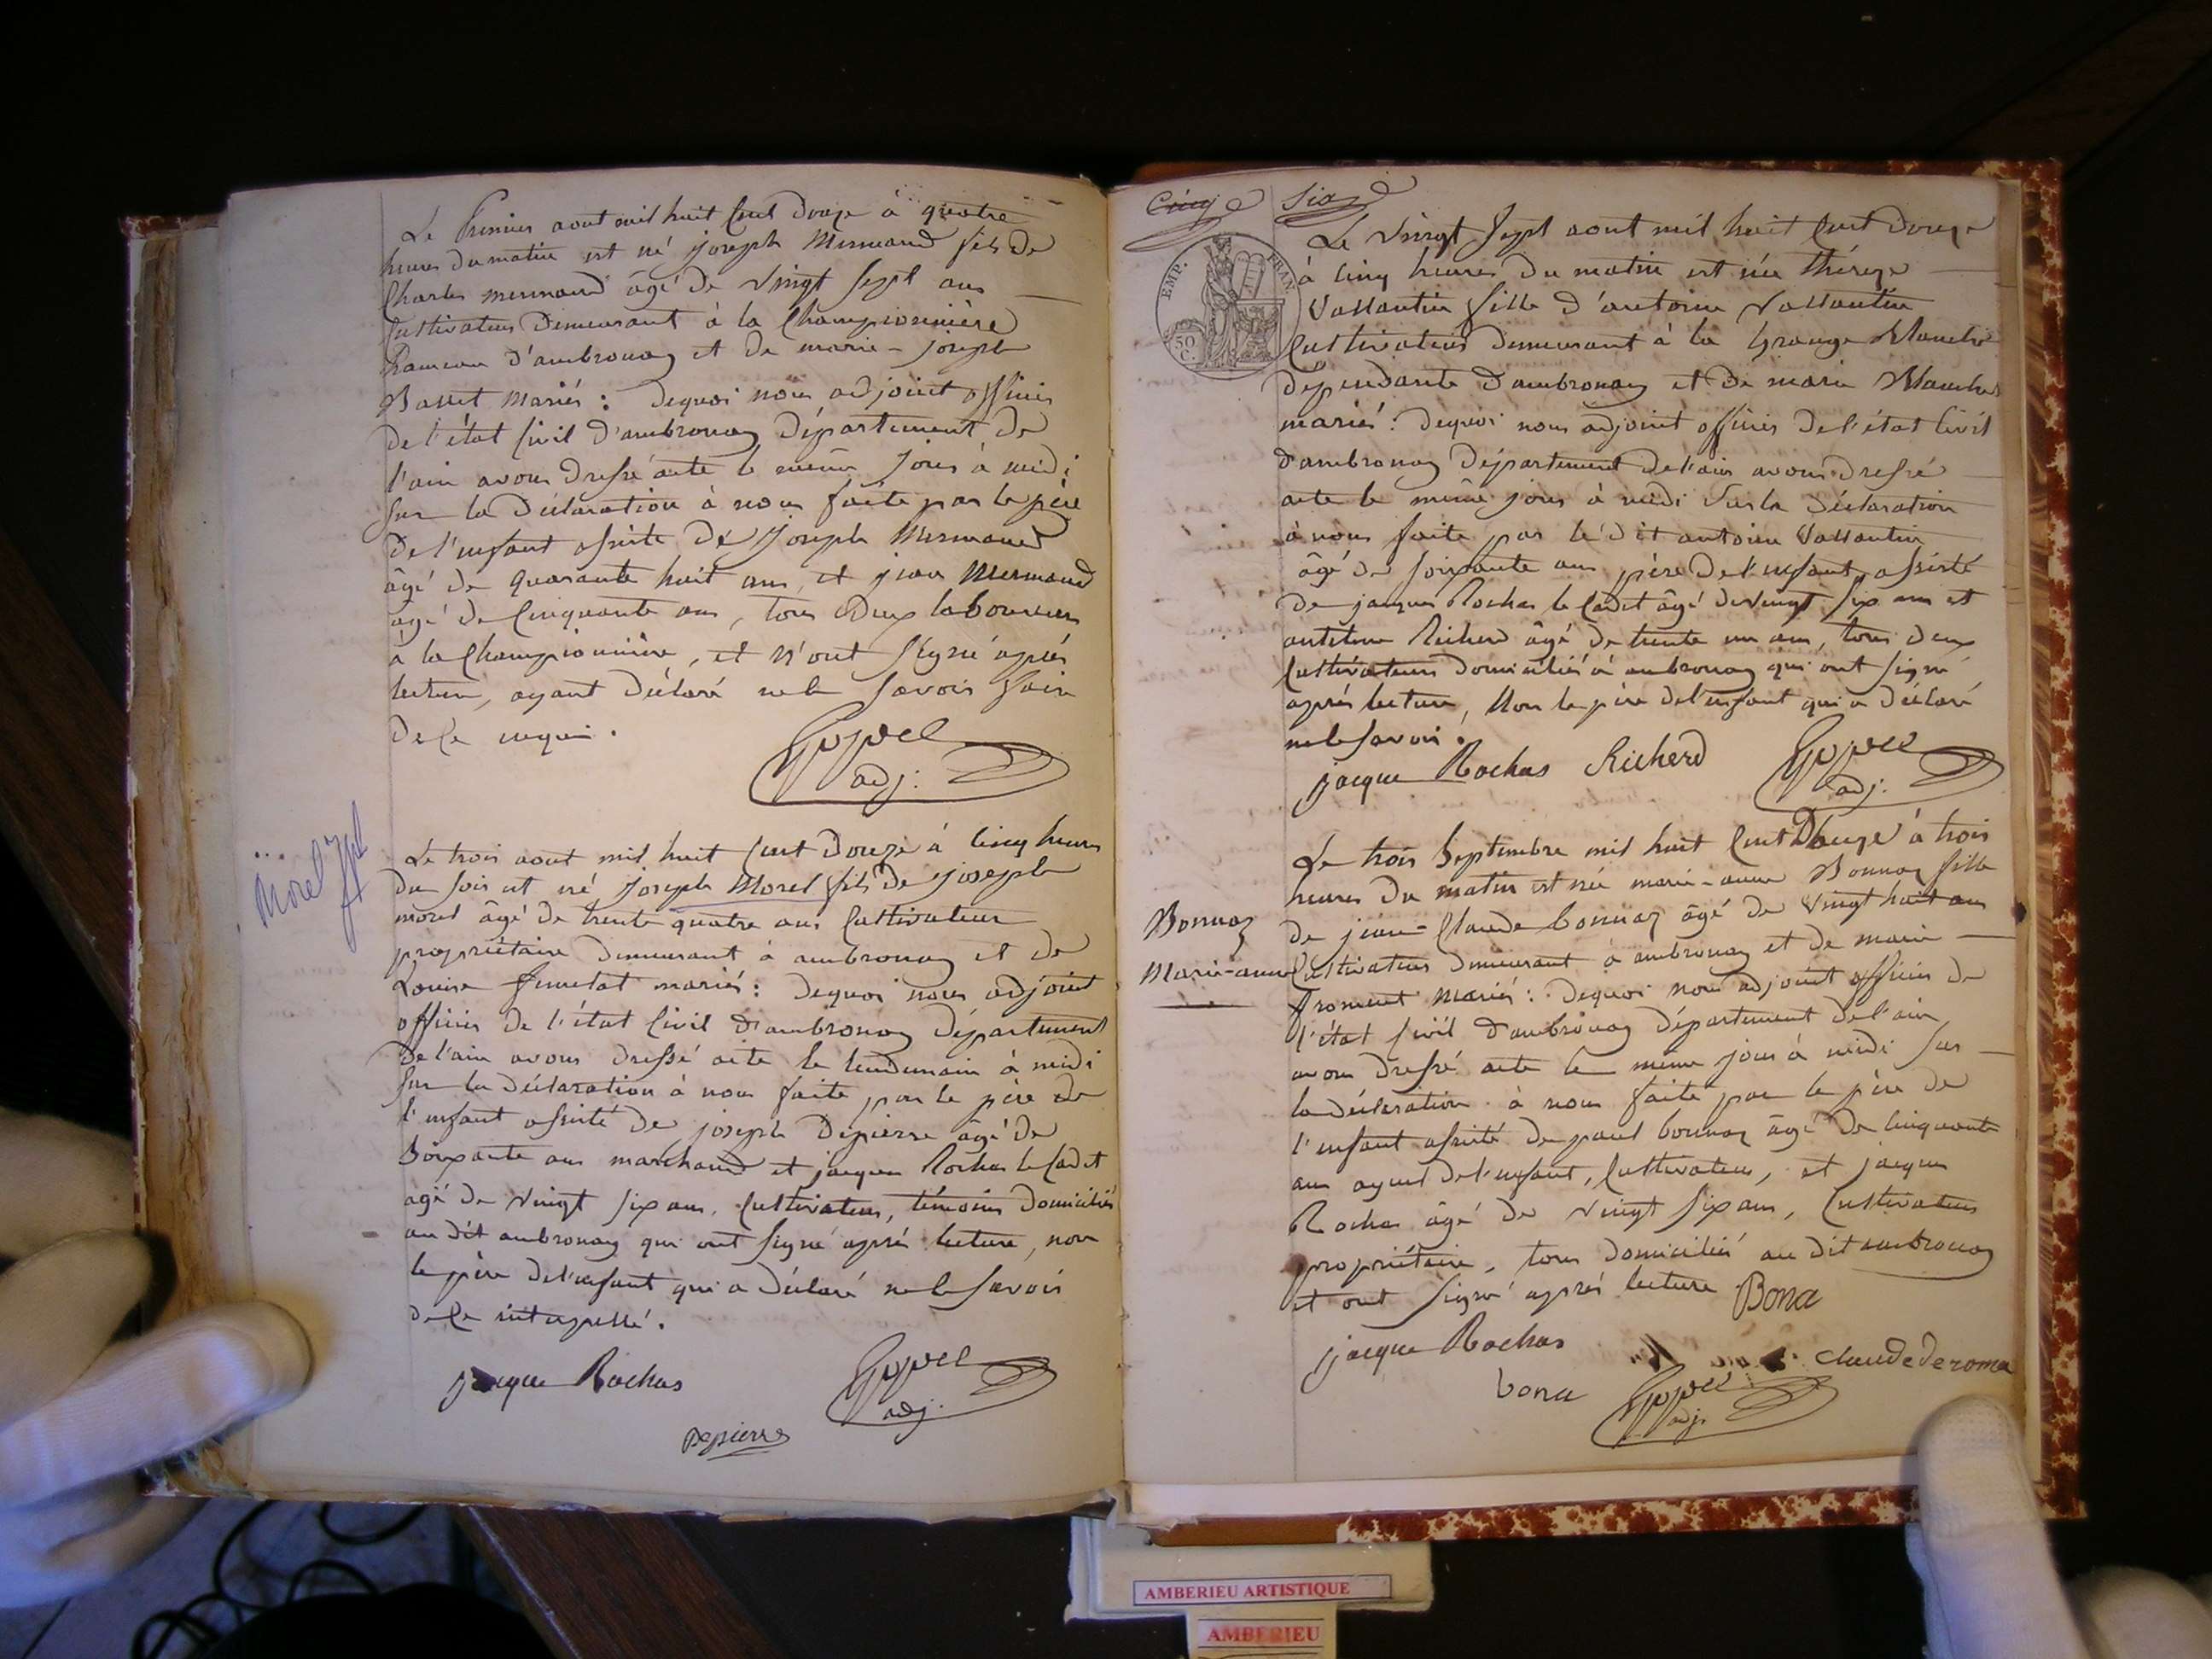 Le Premier aout mil huit Cent douze à quatre
heures du matin est né joseph Mermand fils de
Charles mermand âgé de vingt sept ans
Cultivateur demeurant à la Championnière
hameau d'ambronay et de marie-joseph
Bassit mariés : dequoi nous adjoint officier
de l'état Civil d'ambronay département de
l'ain avons dressé acte le même jour à midi
sur la déclaration à nous faite par le père
de l'enfant assisté de joseph Mermand
âgé de quarante huit ans et jean Mermand
âgé de Cinquante ans, tous deux laboureurs
a la Championnière, et n'ont signé après
lecture, ayant déclaré ne le savoir faire
de ce requis.
adj.
Morel Jph
Le trois aout mil huit Cent Douze à Cinq heures
du soir est né joseph Morel fils de joseph
morel âgé de trente quatre ans Cultivateur
propriétaire demeurant à ambronay et de
Louise mariés : dequoi nous adjoint
officier de l'état Civil d'ambronay département
de l'ain avons dressé acte le lendemain à midi
sur la déclaration à nous faite par le père de
l'enfant assisté de joseph Depierre âgé de
Soixante ans marchand et jacques Rochas le Cadet
agé de vingt six ans, Cultivateur, témoins domiciliés
au dit ambronay qui ont signé après lecture, non
le père de l'enfant qui a déclaré ne le savoir
de ce interpellé.
jacque Rochas
adj.
Depierre
Cinq Six
EMP. FRAN.
50 C.
Le vingt sept aout mil huit Cent douze
à Cinq heures du matin est née thérèze
Vallantin fille d'antoine Vallantin
Cultivateur demeurant à la Grange Blanche
dépendante d'ambronay et de marie Blanche
mariés : dequoi nous adjoint officier de l'état Civil
d'ambronay département de l'ain avons dressé
acte le même jour à midi Sur la déclaration
à nous faite par le dit antoine Vallantin
âgé de soixante ans père de l'enfant, assisté
de jacques Rochas le Cadet âgé de vingt six ans et
antelme Richerd âgé de trente un ans, tous deux
Cultivateurs domiciliés à ambronay qui ont signé
après lecture, Non le père de l'enfant qui a déclaré
ne le savoir.
jacque Rochas Richerd
adj.
Bonnaz
Marie-anne
Le trois Septembre mil huit Cent Douze à trois
heures du matin est née marie-anne Bonnaz fille
de jean-Claude bonnaz âgé de vingt huit ans
Cultivateur demeurant à ambronay et de marie
froment Mariés : dequoi nous adjoint officier de
l'état Civil d'ambronay département de l'ain
avons dressé acte le même jour à midi sur
la déclaration à nous faite par le père de
l'enfant assisté de paul bonnaz âgé de Cinquante
ans ayeul de l'enfant, Cultivateur, et jacques
Rochas âgé de vingt six ans, Cultivateur
propriétaire, tous domiciliés au dit ambronay
et ont signé après lecture Bona
jacque Rochas
claude de roma
bona
adj.
AMBERIEU ARTISTIQUE
AMBERIEU